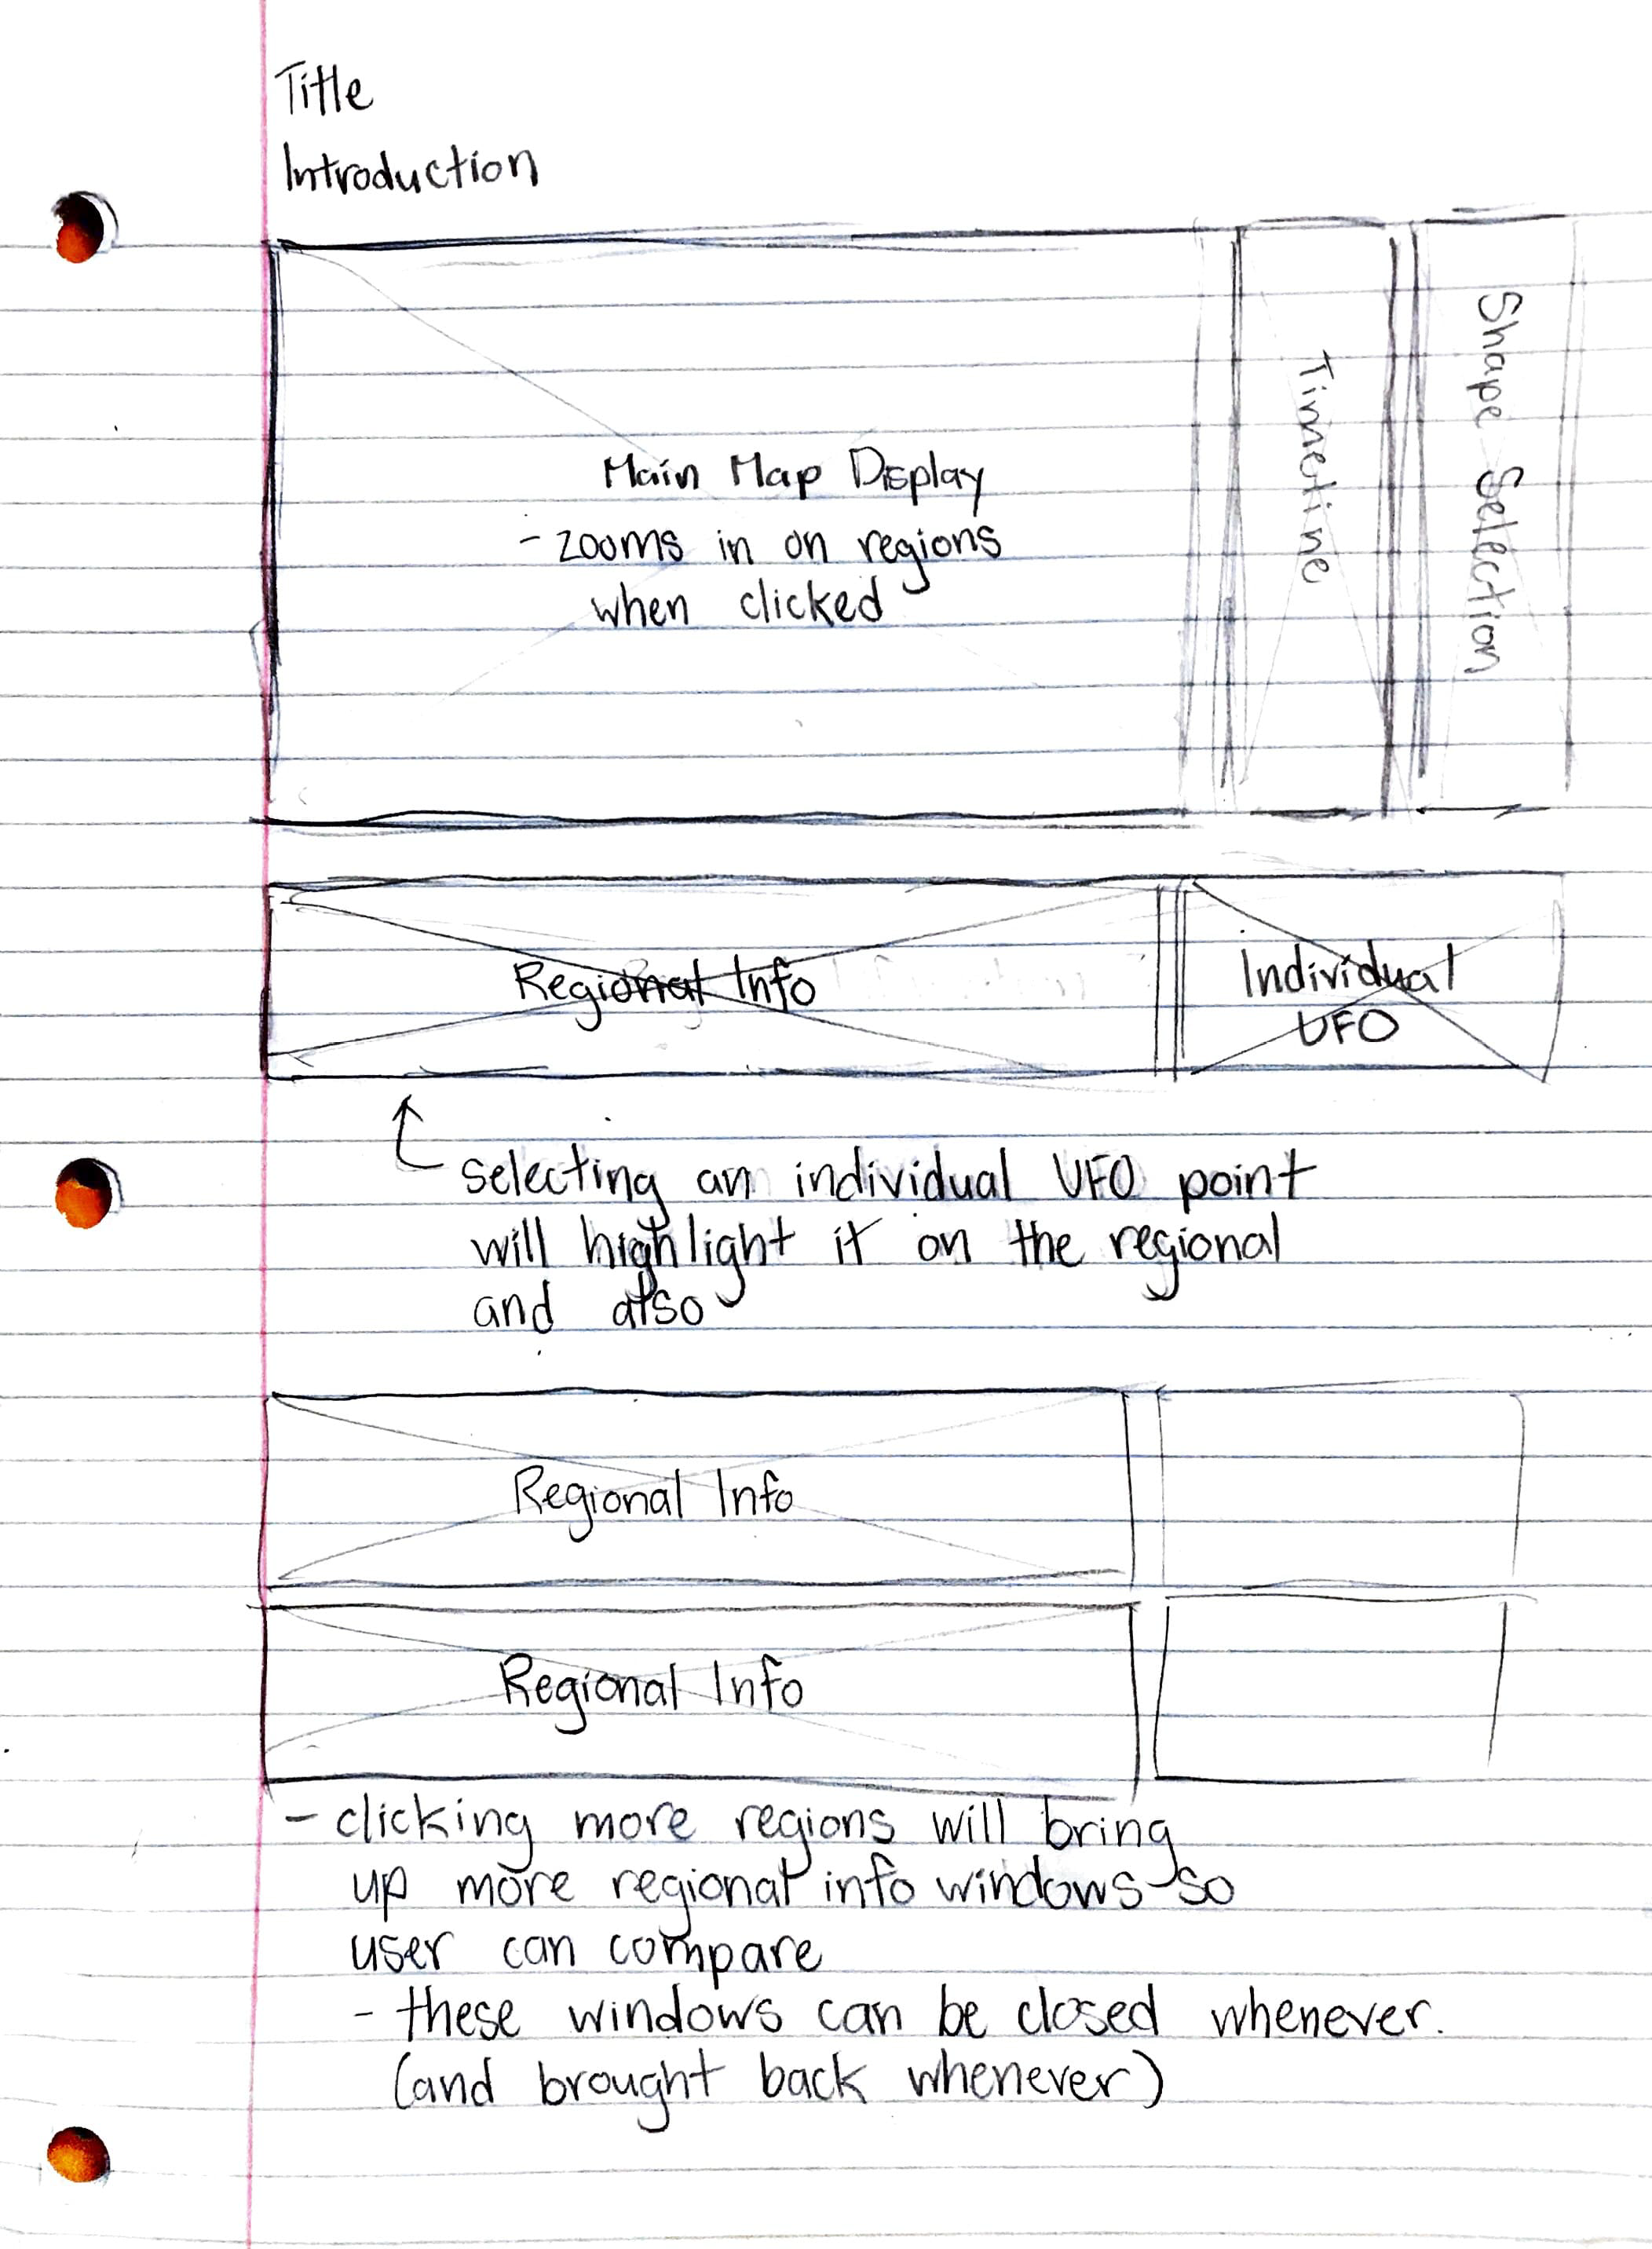 Title
Introduction
Main Map Display
- zooms in on regions
when clicked
Timeline
Shape Selection
Regional Info
Individual
UFO
selecting an individual UFO point
will highlight it on the regional
and also
Regional Info
Regional Info
- clicking more regions will bring
up more regional info windows so
user can compare
- these windows can be closed whenever.
(and brought back whenever)